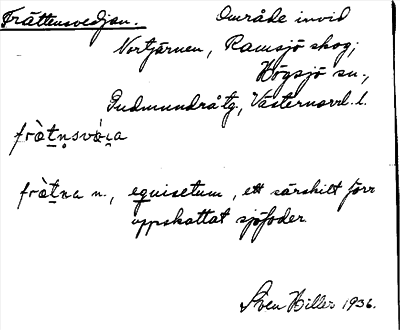 Fråttensvedjan. Område invid
Nortjärnen, Ramsjö skog,
Högsjö sn.,
Gudmundrå tg, Västernorrl. l.
fròt̠n̥svæ̀i̯a
fròt̠na n., equisetum, ett särskilt förr
uppskattat sjöfoder
Sven Hiller 1936.